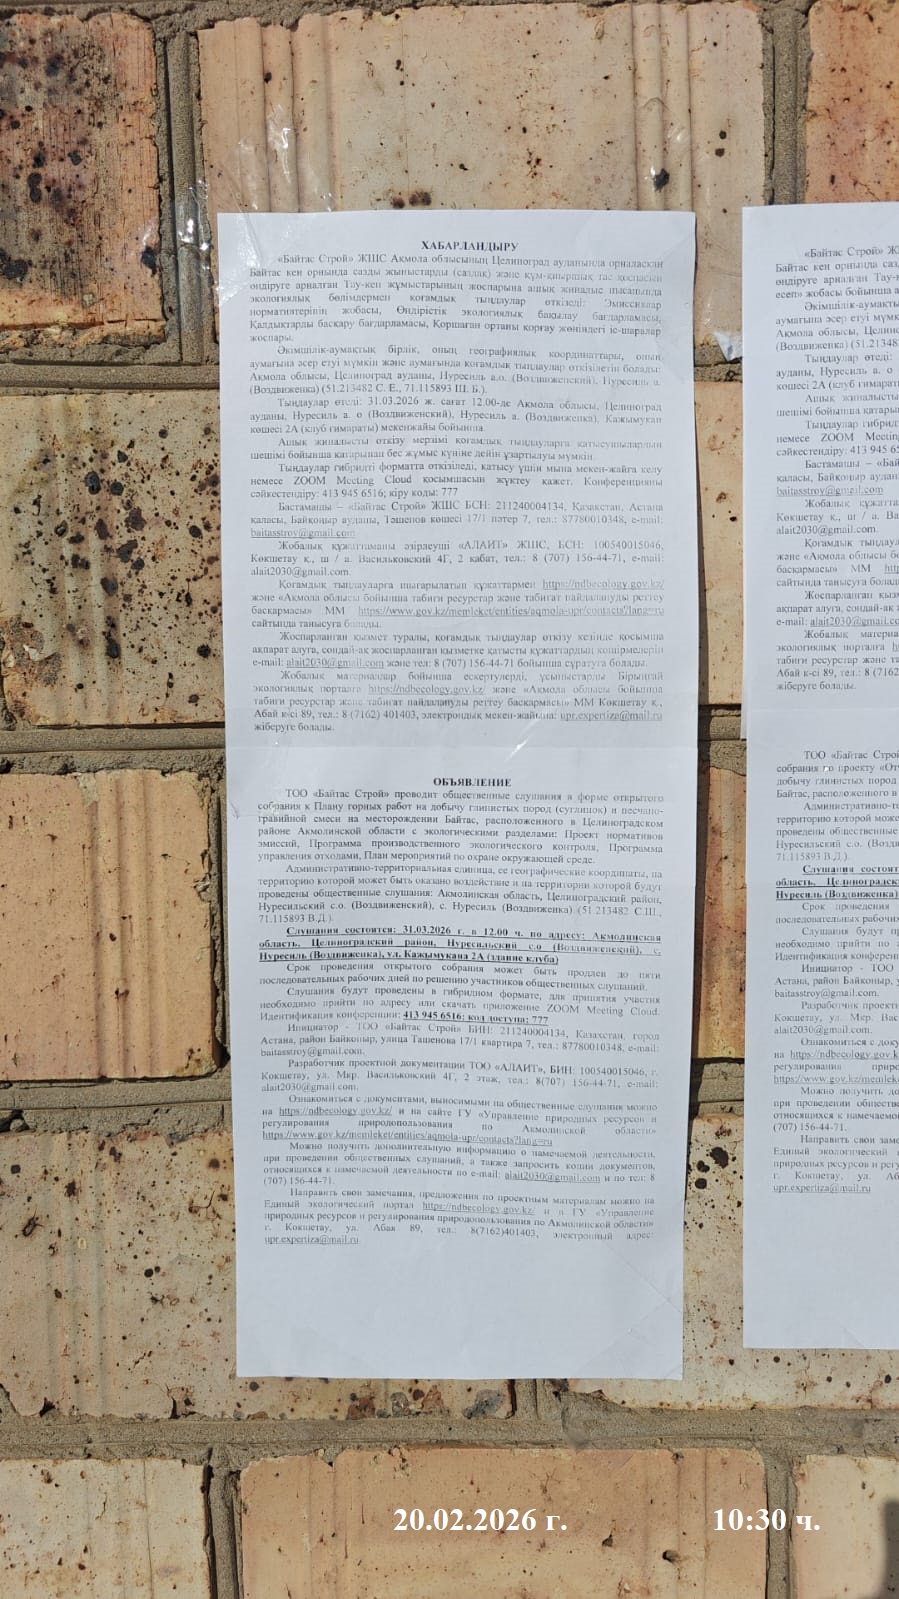 ХАБАРЛАНДЫРУ
«Байтас Строй» ЖШС Ақмола облысының Целиноград ауданында орналасқан
Байтас кен орнында сазды жыныстарды (саздақ) және құм-қиыршық тас қоспасын
өндіруге арналған Тау-кен жұмыстарының жоспарына ашық жиналыс нысанында
экологиялық бөлімдермен қоғамдық тыңдаулар өткізеді: Эмиссиялар
нормативтерінің жобасы, Өндірістік экологиялық бақылау бағдарламасы,
Қалдықтарды басқару бағдарламасы, Қоршаған ортаны қорғау жөніндегі іс-шаралар
жоспары.
Әкімшілік-аумақтық бірлік, оның географиялық координаттары, оның
аумағына әсер етуі мүмкін және аумағында қоғамдық тыңдаулар өткізілетін болады:
Ақмола облысы, Целиноград ауданы, Нуресиль а.о. (Воздвиженский), Нуресиль а.
(Воздвиженка) (51.213482 С. Е., 71.115893 Ш. Б.).
Тыңдаулар өтеді: 31.03.2026 ж. сағат 12.00-де Ақмола облысы, Целиноград
ауданы, Нуресиль а. о (Воздвиженский), Нуресиль а. (Воздвиженка), Кажымукан
көшесі 2А (клуб ғимараты) мекенжайы бойынша.
Ашық жиналысты өткізу мерзімі қоғамдық тыңдауларға қатысушылардың
шешімі бойынша қатарынан бес жұмыс күніне дейін ұзартылуы мүмкін.
Тыңдаулар гибридті форматта өткізіледі, қатысу үшін мына мекен-жайға келу
немесе ZOOM Meeting Cloud қосымшасын жүктеу қажет. Конференцияны
сәйкестендіру: 413 945 6516; кіру коды: 777
Бастамашы – «Байтас Строй» ЖШС БСН: 211240004134, Қазақстан, Астана
қаласы, Байқоңыр ауданы, Ташенов көшесі 17/1 пәтер 7, тел.: 87780010348, e-mail:
baitasstroy@gmail.com
Жобалық құжаттаманы әзірлеуші «АЛАИТ» ЖШС, БСН: 100540015046,
Көкшетау қ., ш / а. Васильковский 4Г, 2 қабат, тел.: 8 (707) 156-44-71, e-mail:
alait2030@gmail.com.
Қоғамдық тыңдауларға шығарылатын құжаттармен https://ndbecology.gov.kz/
және «Ақмола облысы бойынша табиғи ресурстар және табиғат пайдалануды реттеу
басқармасы» ММ https://www.gov.kz/memleket/entities/aqmola-upr/contacts?lang=ru
сайтында танысуға болады.
Жоспарланған қызмет туралы, қоғамдық тыңдаулар өткізу кезінде қосымша
ақпарат алуға, сондай-ақ жоспарланған қызметке қатысты құжаттардың көшірмелерін
e-mail: alait2030@gmail.com және тел: 8 (707) 156-44-71 бойынша сұратуға болады.
Жобалық материалдар бойынша ескертулерді, ұсыныстарды Бірыңғай
экологиялық порталға https://ndbecology.gov.kz/ және «Ақмола облысы бойынша
табиғи ресурстар және табиғат пайдалануды реттеу басқармасы» ММ Көкшетау қ.,
Абай к-сі 89, тел.: 8 (7162) 401403, электрондық мекен-жайына: upr.expertiza@mail.ru
жіберуге болады.
ОБЪЯВЛЕНИЕ
ТОО «Байтас Строй» проводит общественные слушания в форме открытого
собрания к Плану горных работ на добычу глинистых пород (суглинок) и песчано-
гравийной смеси на месторождении Байтас, расположенного в Целиноградском
районе Акмолинской области с экологическими разделами: Проект нормативов
эмиссий, Программа производственного экологического контроля, Программа
управления отходами, План мероприятий по охране окружающей среде.
Административно-территориальная единица, ее географические координаты, на
территорию которой может быть оказано воздействие и на территории которой будут
проведены общественные слушания: Акмолинская область, Целиноградский район,
Нуресильский с.о. (Воздвиженский), с. Нуресиль (Воздвиженка) (51.213482 С.Ш.,
71.115893 В.Д.).
Слушания состоятся: 31.03.2026 г. в 12.00 ч. по адресу: Акмолинская
область, Целиноградский район, Нуресильский с.о (Воздвиженский), с.
Нуресиль (Воздвиженка), ул. Кажымукана 2А (здание клуба)
Срок проведения открытого собрания может быть продлен до пяти
последовательных рабочих дней по решению участников общественных слушаний.
Слушания будут проведены в гибридном формате, для принятия участия
необходимо прийти по адресу или скачать приложение ZOOM Meeting Cloud.
Идентификация конференции: 413 945 6516; код доступа: 777
Инициатор - ТОО «Байтас Строй» БИН: 211240004134, Казахстан, город
Астана, район Байконыр, улица Ташенова 17/1 квартира 7, тел.: 87780010348, e-mail:
baitasstroy@gmail.com.
Разработчик проектной документации ТОО «АЛАИТ», БИН: 100540015046, г.
Кокшетау, ул. Мкр. Васильковский 4Г, 2 этаж, тел.: 8(707) 156-44-71, e-mail:
alait2030@gmail.com.
Ознакомиться с документами, выносимыми на общественные слушания можно
на https://ndbecology.gov.kz/ и на сайте ГУ «Управление природных ресурсов и
регулирования природопользования по Акмолинской области»
https://www.gov.kz/memleket/entities/aqmola-upr/contacts?lang=ru
Можно получить дополнительную информацию о намечаемой деятельности,
при проведении общественных слушаний, а также запросить копии документов,
относящихся к намечаемой деятельности по e-mail: alait2030@gmail.com и по тел: 8
(707) 156-44-71.
Направить свои замечания, предложения по проектным материалам можно на
Единый экологический портал https://ndbecology.gov.kz/ и в ГУ «Управление
природных ресурсов и регулирования природопользования по Акмолинской области»
г. Кокшетау, ул. Абая 89, тел.: 8(7162)401403, электронный адрес:
upr.expertiza@mail.ru
«Байтас Строй»
Байтас кен орнында
өндіруге арналған Тау-кен
есеп» жобасы бойынша
Әкімшілік-аумақтық
аумағына әсер етуі
Ақмола облысы,
(Воздвиженка)
Тыңдаулар өтеді:
ауданы, Нуресиль а. о
көшесі 2А (клуб
Ашық жиналысты
шешімі бойынша
Тыңдаулар
немесе ZOOM
сәйкестендіру: 413 945
Бастамашы –
қаласы, Байқоңыр
baitasstroy@gmail.com
Жобалық
Көкшетау қ., ш / а.
alait2030@gmail.com.
Қоғамдық
және «Ақмола облысы
басқармасы» ММ
сайтында танысуға
Жоспарланған
ақпарат алуға, сондай-ақ
e-mail:
Жобалық
экологиялық порталға
табиғи ресурстар және
Абай к-сі 89, тел.: 8
жіберуге болады.
ТОО «Байтас
собрания по проекту
добычу глинистых пород
Байтас, расположенного в
территорию которой
проведены общественные
Нуресильский с.о.
71.115893 В.Д.).
Слушания
область,
Нуресиль (Воздвиженка)
Срок проведения
последовательных
Слушания будут
необходимо прийти по
Идентификация
Инициатор - ТОО
Астана, район Байконыр,
baitasstroy@gmail.com.
Разработчик
Кокшетау, ул. Мкр.
alait2030@gmail.com.
Ознакомиться с
на
регулирования
Можно получить
при проведении
относящихся к
(707) 156-44-71.
Направить свои
Единый экологический
природных ресурсов и
г. Кокшетау, ул.
upr.expertiza@mail.ru
20.02.2026 г. 10:30 ч.